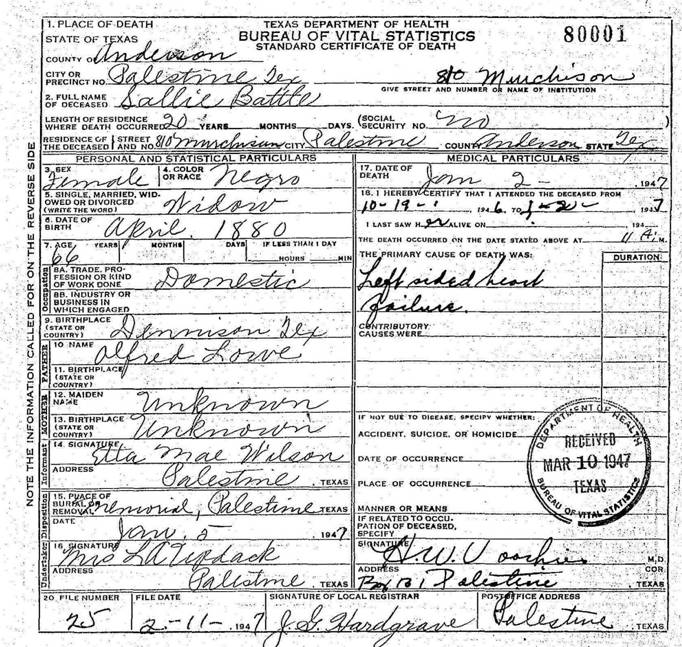 1. PLACE OF DEATH
STATE OF TEXAS
COUNTY OF Anderson
CITY OR PRECINCT NO. Palestine Tex
TEXAS DEPARTMENT OF HEALTH
BUREAU OF VITAL STATISTICS
STANDARD CERTIFICATE OF DEATH
80001
810 Murchison
GIVE STREET AND NUMBER OR NAME OF INSTITUTION
2. FULL NAME OF DECEASED Sallie Battle
LENGTH OF RESIDENCE WHERE DEATH OCCURRED 20 YEARS MONTHS DAYS. (SOCIAL SECURITY NO. no
RESIDENCE OF THE DECEASED STREET AND NO. 810 Murchison CITY Palestine COUNTY Anderson STATE Tex
PERSONAL AND STATISTICAL PARTICULARS
3. SEX Female 4. COLOR OR RACE Negro
5. SINGLE, MARRIED, WIDOWED OR DIVORCED (WRITE THE WORD) Widow
6. DATE OF BIRTH April, 1880
7. AGE 66 YEARS MONTHS DAYS IF LESS THAN 1 DAY
HOURS MIN
Occupation
8A. TRADE, PROFESSION OR KIND OF WORK DONE Domestic
8B. INDUSTRY OR BUSINESS IN WHICH ENGAGED
9. BIRTHPLACE (STATE OR COUNTRY) Dennison Tex
FATHER
10 NAME Alfred Lowe
11. BIRTHPLACE (STATE OR COUNTRY)
MOTHER
12. MAIDEN NAME Unknown
13. BIRTHPLACE (STATE OR COUNTRY) Unknown
Informant
14. SIGNATURE Etta Mae Wilson
ADDRESS Palestine, TEXAS
Disposition
15. PLACE OF BURIAL OR REMOVAL Memorial, Palestine TEXAS
DATE Jan. 5 1947
Undertaker
16. SIGNATURE Mrs LA
ADDRESS Palestine, TEXAS
MEDICAL PARTICULARS
17. DATE OF DEATH Jan 2- 1947
18. I HEREBY CERTIFY THAT I ATTENDED THE DECEASED FROM
10-19- 1946, TO 1-2- 1947
I LAST SAW H er ALIVE ON 194
THE DEATH OCCURRED ON THE DATE STATED ABOVE AT 11 A. M.
THE PRIMARY CAUSE OF DEATH WAS: DURATION
Left sided heart
failure.
CONTRIBUTORY CAUSES WERE
IF NOT DUE TO DISEASE, SPECIFY WHETHER:
ACCIDENT, SUICIDE, OR HOMICIDE
DATE OF OCCURRENCE
PLACE OF OCCURRENCE
MANNER OR MEANS
IF RELATED TO OCCUPATION OF DECEASED, SPECIFY
SIGNATURE H.W. Voorhies M.D.
COR.
ADDRESS Box 131 Palestine, TEXAS
DEPARTMENT OF HEALTH
RECEIVED
MAR 10 1947
TEXAS
BUREAU OF VITAL STATISTICS
20 FILE NUMBER 25
FILE DATE 2-11- 1947
SIGNATURE OF LOCAL REGISTRAR J. G. Hardgrave
POSTOFFICE ADDRESS Palestine, TEXAS
NOTE THE INFORMATION CALLED FOR ON THE REVERSE SIDE